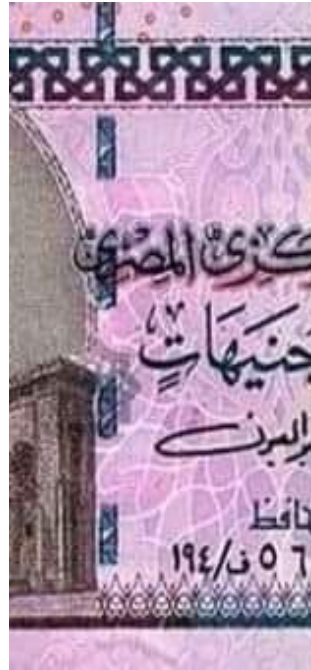 كزى المصرى
جنيهات
حافظ
٥٦ ف/١٩٤